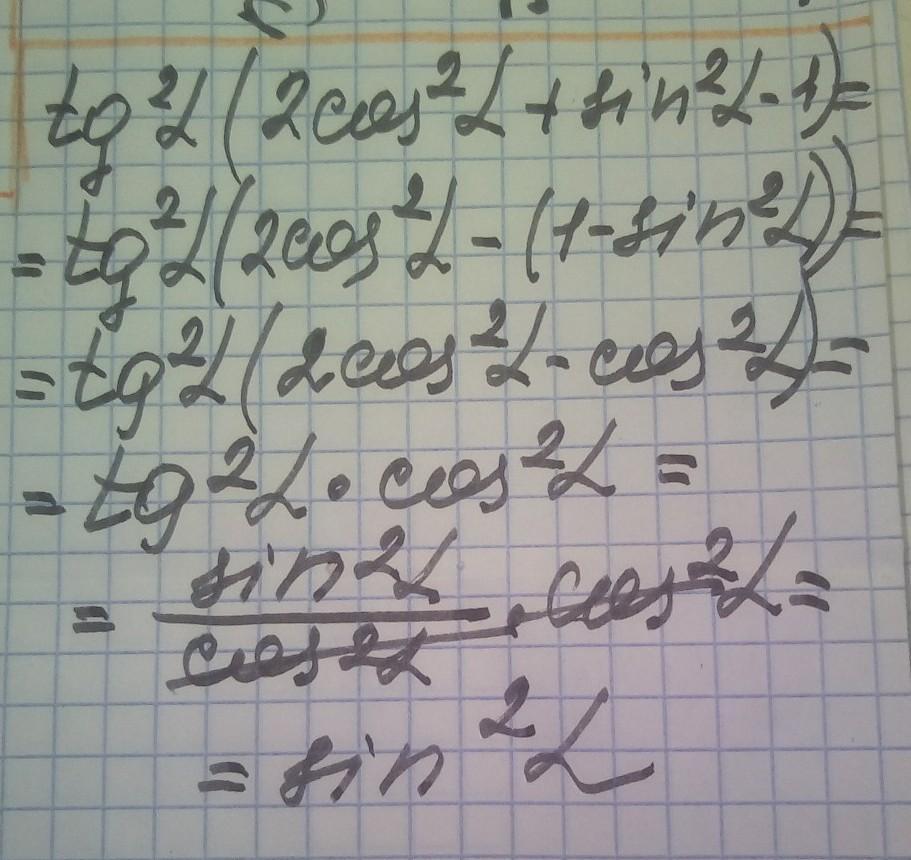 tg²α(2cos²α + sin²α - 1) =
= tg²α(2cos²α - (1 - sin²α)) =
= tg²α(2cos²α - cos²α) =
= tg²α · cos²α =
= sin²α / cos²α · cos²α =
= sin²α